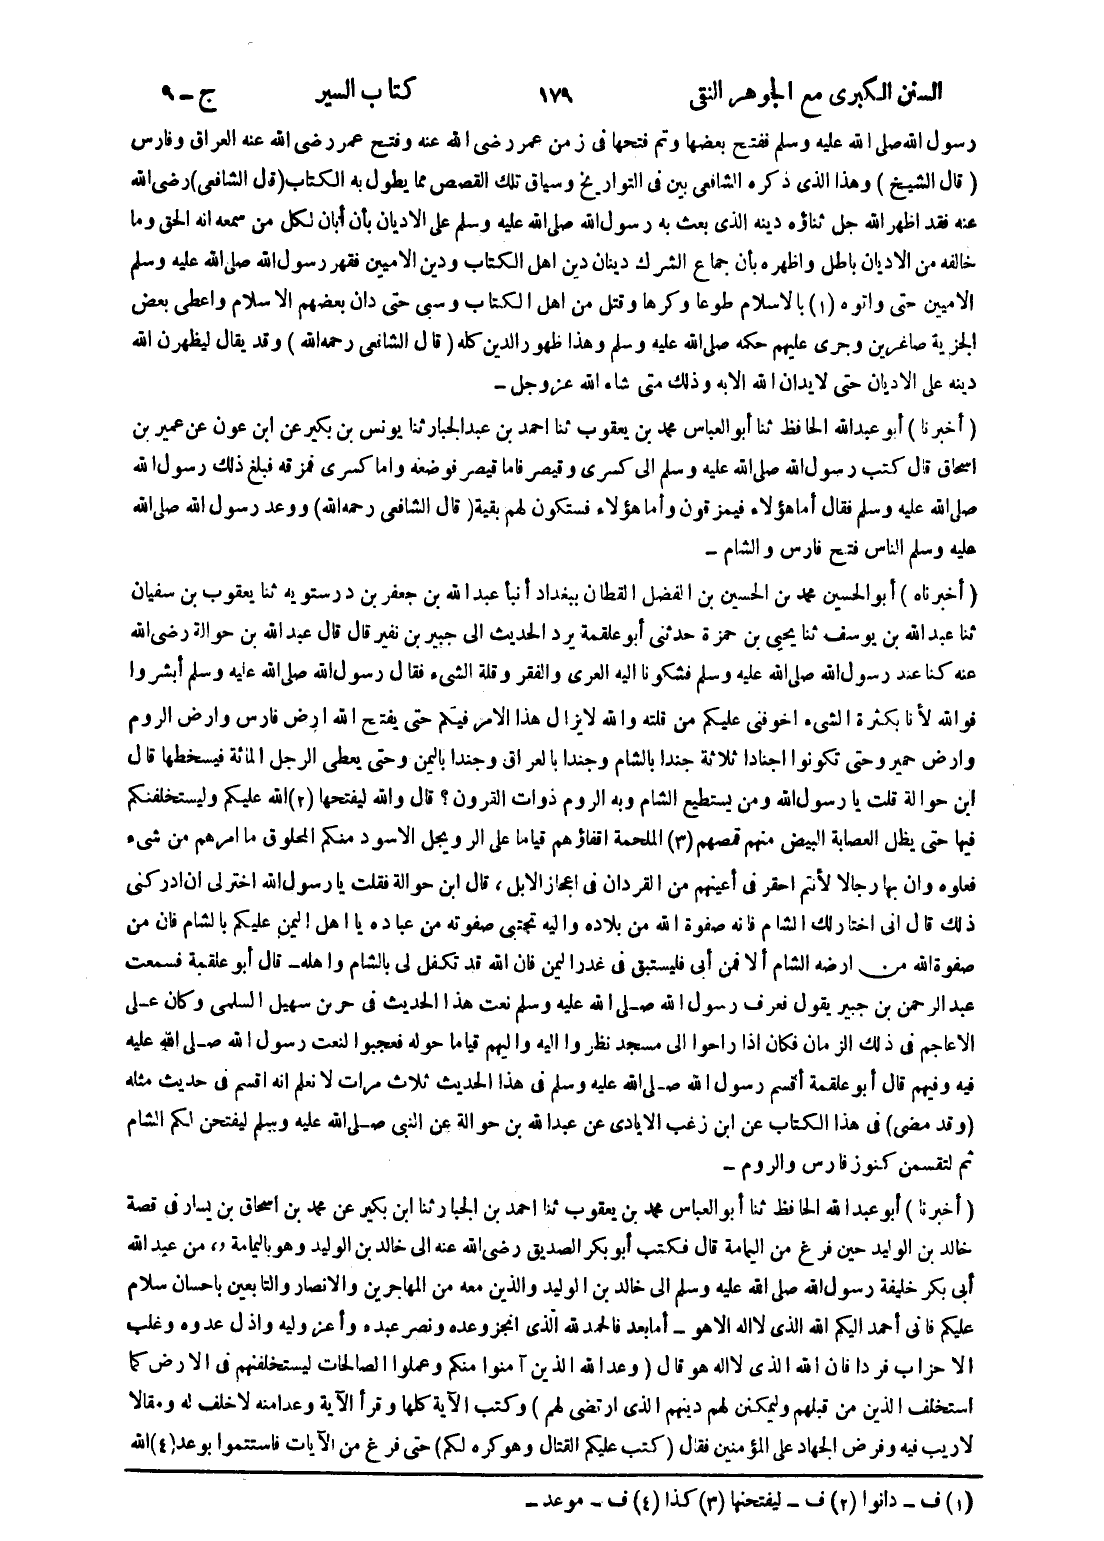 السنن الكبرى مع الجوهر النقى ١٧٩ كتاب السير ج ـ ٩
رسول الله صلى الله عليه وسلم ففتح بعضها وتم فتحها فى زمن عمر رضى الله عنه وفتح عمر رضى الله عنه العراق وفارس
( قال الشيخ ) وهذا الذى ذكره الشافعى بين فى التواريخ وسياق تلك القصص مما يطول به الكتاب (قال الشافعى) رضى الله
عنه فقد اظهر الله جل ثناؤه دينه الذى بعث به رسول الله صلى الله عليه وسلم على الاديان بأن أبان لكل من سمعه انه الحق وما
خالفه من الاديان باطل واظهره بأن جماع الشرك دينان دين اهل الكتاب ودين الاميين فقهر رسول الله صلى الله عليه وسلم
الاميين حتى واتوه (١) بالاسلام طوعا وكرها وقتل من اهل الكتاب وسبى حتى دان بعضهم الاسلام واعطى بعض
الجزية صاغرين وجرى عليهم حكمه صلى الله عليه وسلم وهذا ظهور الدين كله ( قال الشافعى رحمه الله ) وقد يقال ليظهرن الله
دينه على الاديان حتى لا يدان الله الابه وذلك متى شاء الله عز وجل ـ
( أخبرنا ) أبو عبد الله الحافظ ثنا أبو العباس محمد بن يعقوب ثنا احمد بن عبد الجبار ثنا يونس بن بكير عن ابن عون عن عمير بن
اسحاق قال كتب رسول الله صلى الله عليه وسلم الى كسرى وقيصر فاما قيصر فوضعه واما كسرى فمزقه فبلغ ذلك رسول الله
صلى الله عليه وسلم فقال أما هؤلاء فيمزقون وأما هؤلاء فستكون لهم بقية ( قال الشافعى رحمه الله) ووعد رسول الله صلى الله
عليه وسلم الناس فتح فارس والشام ـ
( أخبرناه ) أبو الحسين محمد بن الحسين بن الفضل القطان ببغداد أنبأ عبد الله بن جعفر بن درستويه ثنا يعقوب بن سفيان
ثنا عبد الله بن يوسف ثنا يحيى بن حمزة حدثنى أبو علقمة يرد الحديث الى جبير بن نفير قال قال عبد الله بن حوالة رضى الله
عنه كنا عند رسول الله صلى الله عليه وسلم فشكونا اليه العرى والفقر وقلة الشىء فقال رسول الله صلى الله عليه وسلم أبشروا
فوالله لأنا بكثرة الشىء اخوفنى عليكم من قلته والله لا يزال هذا الامر فيكم حتى يفتح الله ارض فارس وارض الروم
وارض حمير وحتى تكونوا اجنادا ثلاثة جندا بالشام وجندا بالعراق وجندا باليمن وحتى يعطى الرجل المائة فيسخطها قال
ابن حوالة قلت يا رسول الله ومن يستطيع الشام وبه الروم ذوات القرون ؟ قال والله ليفتحها (٢) الله عليكم وليستخلفنكم
فيها حتى يظل العصابة البيض منهم قمصهم (٣) الملحمة اقفاؤهم قياما على الرويجل الاسود منكم المحلوق ما امرهم من شىء
فعلوه وان بها رجالا لأنتم احقر فى أعينهم من القردان فى اعجاز الابل ، قال ابن حوالة فقلت يا رسول الله اختر لى ان ادركنى
ذلك قال انى اختار لك الشام فانه صفوة الله من بلاده واليه تجتبى صفوته من عباده يا اهل اليمن عليكم بالشام فان من
صفوة الله من ارضه الشام ألا فمن أبى فليستبق فى غدر اليمن فان الله قد تكفل لى بالشام واهله ـ قال أبو علقمة فسمعت
عبد الرحمن بن جبير يقول فعرف رسول الله صلى الله عليه وسلم نعت هذا الحديث فى جر بن سهيل السلمى وكان على
الاعاجم فى ذلك الزمان فكان اذا راحوا الى مسجد نظروا اليه واليهم قياما حوله فعجبوا لنعت رسول الله صلى الله عليه
فيه وفيهم قال أبو علقمة أقسم رسول الله صلى الله عليه وسلم فى هذا الحديث ثلاث مرات لا نعلم انه اقسم فى حديث مثله
(وقد مضى) فى هذا الكتاب عن ابن زغب الايادى عن عبد الله بن حوالة عن النبى صلى الله عليه وسلم ليفتحن لكم الشام
ثم لتقسمن كنوز فارس والروم ـ
( أخبرنا ) أبو عبد الله الحافظ ثنا أبو العباس محمد بن يعقوب ثنا احمد بن الجبار ثنا ابن بكير عن محمد بن اسحاق بن يسار فى قصة
خالد بن الوليد حين فرغ من اليمامة قال فكتب أبو بكر الصديق رضى الله عنه الى خالد بن الوليد وهو باليمامة ،، من عبد الله
أبى بكر خليفة رسول الله صلى الله عليه وسلم الى خالد بن الوليد والذين معه من المهاجرين والانصار والتابعين باحسان سلام
عليكم فانى أحمد اليكم الله الذى لا اله الا هو ـ أما بعد فالحمد لله الذى انجز وعده ونصر عبده وأعز وليه واذل عدوه وغلب
الاحزاب فردا فان الله الذى لا اله هو قال ( وعد الله الذين آمنوا منكم وعملوا الصالحات ليستخلفنهم فى الارض كما
استخلف الذين من قبلهم وليمكنن لهم دينهم الذى ارتضى لهم ) وكتب الآية كلها وقرأ الآية وعدا منه لا خلف له ومقالا
لا ريب فيه وفرض الجهاد على المؤمنين فقال ( كتب عليكم القتال وهو كره لكم) حتى فرغ من الآيات فاستتموا بوعد (٤) الله
(١) ف ـ دانوا (٢) ف ـ ليفتحنها (٣) كذا (٤) ف ـ موعد ـ